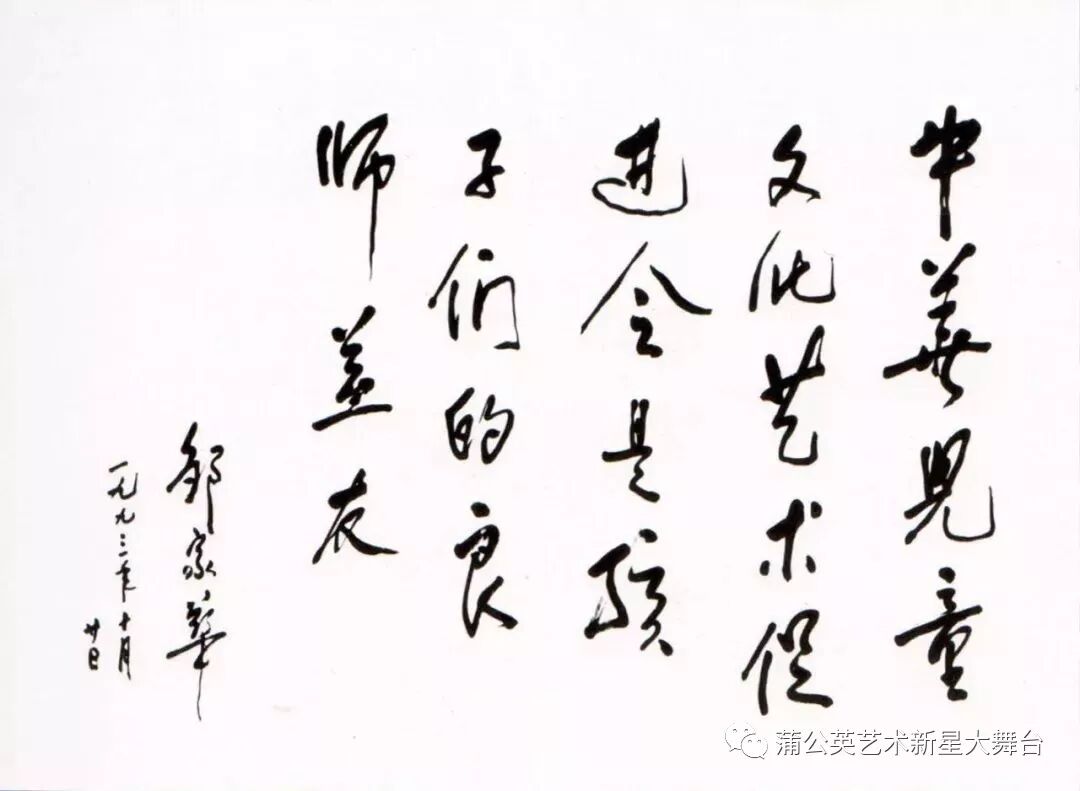 中華兒童
文化艺术促
进会是孩
子们的良
师益友
鄒家華
一九九三年十月
廿日
蒲公英艺术新星大舞台